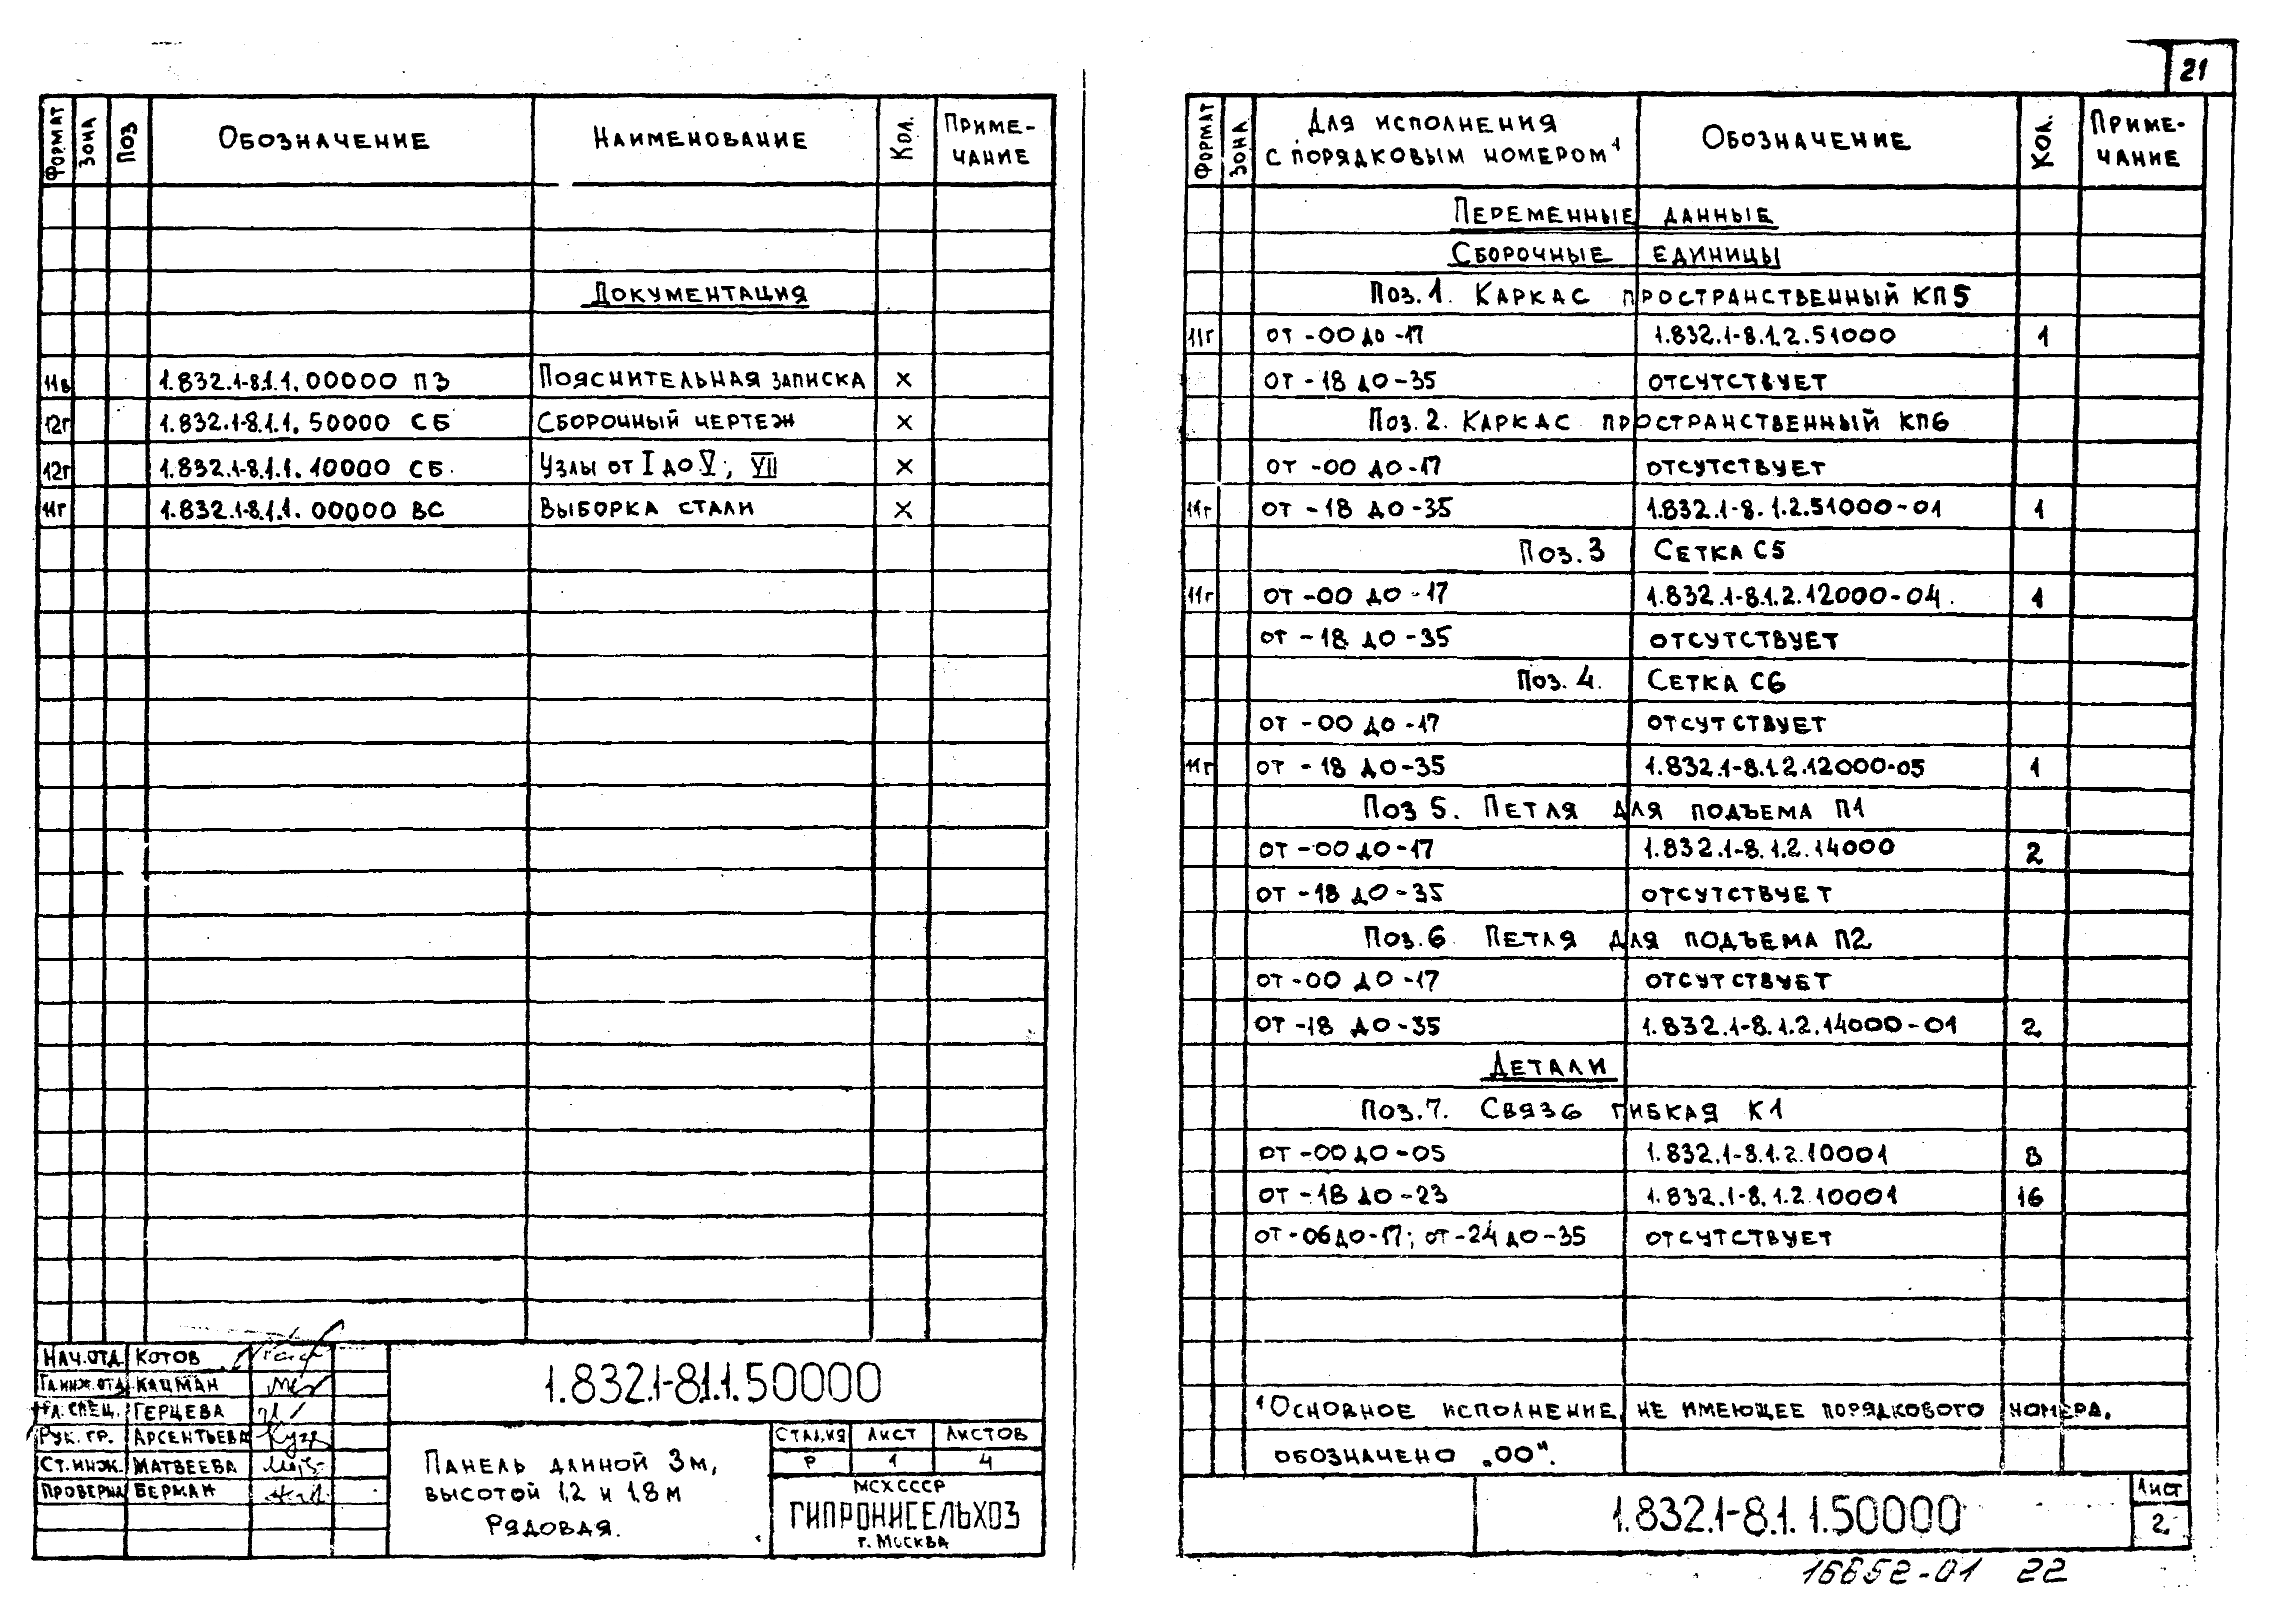 21
ФОРМАТ ЗОНА ПОЗ ОБОЗНАЧЕНИЕ НАИМЕНОВАНИЕ КОЛ. ПРИМЕ-
ЧАНИЕ
ДОКУМЕНТАЦИЯ
11в 1.832.1-8.1.1. 00000 ПЗ ПОЯСНИТЕЛЬНАЯ ЗАПИСКА ×
12г 1.832.1-8.1.1. 50000 СБ СБОРОЧНЫЙ ЧЕРТЕЖ ×
12г 1.832.1-8.1.1. 10000 СБ. УЗЛЫ ОТ I ДО V; VII ×
11г 1.832.1-8.1.1. 00000 ВС ВЫБОРКА СТАЛИ ×
НАЧ.ОТД. КОТОВ
ГЛ.ИНЖ.ОТД. КАЦМАН
ГЛ.СПЕЦ. ГЕРЦЕВА
РУК. ГР. АРСЕНТЬЕВА
СТ.ИНЖ. МАТВЕЕВА
ПРОВЕРИЛ БЕРМАН
1.832.1-8.1.1.50000
ПАНЕЛЬ ДЛИНОЙ 3М,
ВЫСОТОЙ 1,2 И 1,8 М
РЯДОВАЯ.
СТАДИЯ ЛИСТ ЛИСТОВ
Р 1 4
МСХ СССР
ГИПРОНИСЕЛЬХОЗ
Г. МОСКВА
ФОРМАТ ЗОНА ДЛЯ ИСПОЛНЕНИЯ
С ПОРЯДКОВЫМ НОМЕРОМ¹ ОБОЗНАЧЕНИЕ КОЛ. ПРИМЕ-
ЧАНИЕ
ПЕРЕМЕННЫЕ ДАННЫЕ
СБОРОЧНЫЕ ЕДИНИЦЫ
ПОЗ. 1. КАРКАС ПРОСТРАНСТВЕННЫЙ КП5
11г ОТ -00 ДО -17 1.832.1-8.1.2.51000 1
ОТ -18 ДО -35 ОТСУТСТВУЕТ
ПОЗ. 2. КАРКАС ПРОСТРАНСТВЕННЫЙ КП6
ОТ -00 ДО -17 ОТСУТСТВУЕТ
11г ОТ -18 ДО -35 1.832.1-8.1.2.51000-01 1
ПОЗ. 3 СЕТКА С5
11г ОТ -00 ДО -17 1.832.1-8.1.2.12000-04. 1
ОТ -18 ДО -35 ОТСУТСТВУЕТ
ПОЗ. 4. СЕТКА С6
ОТ -00 ДО -17 ОТСУТСТВУЕТ
11г ОТ -18 ДО -35 1.832.1-8.1.2.12000-05 1
ПОЗ 5. ПЕТЛЯ ДЛЯ ПОДЪЕМА П1
ОТ -00 ДО -17 1.832.1-8.1.2.14000 2
ОТ -18 ДО -35 ОТСУТСТВУЕТ
ПОЗ. 6 ПЕТЛЯ ДЛЯ ПОДЪЕМА П2
ОТ -00 ДО -17 ОТСУТСТВУЕТ
ОТ -18 ДО -35 1.832.1-8.1.2.14000-01 2
ДЕТАЛИ
ПОЗ. 7. СВЯЗЬ ГИБКАЯ К1
ОТ -00 ДО -05 1.832.1-8.1.2.10001 8
ОТ -18 ДО -23 1.832.1-8.1.2.10001 16
ОТ -06 ДО -17; ОТ -24 ДО -35 ОТСУТСТВУЕТ
¹ ОСНОВНОЕ ИСПОЛНЕНИЕ, НЕ ИМЕЮЩЕЕ ПОРЯДКОВОГО НОМЕРА,
ОБОЗНАЧЕНО „00".
1.832.1-8.1.1.50000
ЛИСТ
2
16652-01 22